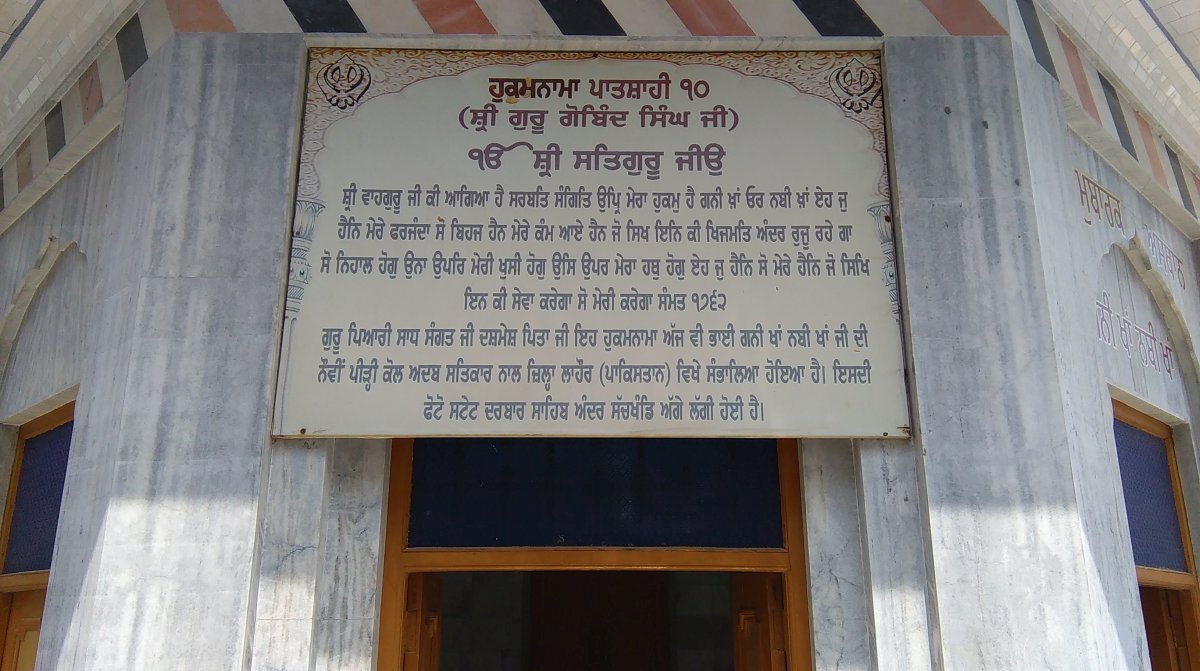 ਹੁਕਮਨਾਮਾ ਪਾਤਸ਼ਾਹੀ ੧੦
(ਸ਼੍ਰੀ ਗੁਰੂ ਗੋਬਿੰਦ ਸਿੰਘ ਜੀ)
ੴ ਸ਼੍ਰੀ ਸਤਿਗੁਰੂ ਜੀਉ
ਸ਼੍ਰੀ ਵਾਹਗੁਰੂ ਜੀ ਕੀ ਆਗਿਆ ਹੈ ਸਰਬਤਿ ਸੰਗਿਤਿ ਉਪ੍ਰਿ ਮੇਰਾ ਹੁਕਮੁ ਹੈ ਗਨੀ ਖ਼ਾਂ ਓਰ ਨਬੀ ਖ਼ਾਂ ਏਹ ਜੁ
ਹੈਨਿ ਮੇਰੇ ਫਰਜੰਦਾ ਸੋਂ ਬਿਹਜ ਹੈਨ ਮੇਰੇ ਕੰਮ ਆਏ ਹੈਨ ਜੋ ਸਿਖ ਇਨਿ ਕੀ ਖਿਜਮਤਿ ਅੰਦਰ ਰੁਜੂ ਰਹੇ ਗਾ
ਸੋ ਨਿਹਾਲ ਹੋਗੁ ਉਨਾ ਉਪਰਿ ਮੇਰੀ ਖੁਸੀ ਹੋਗੁ ਉਸਿ ਉਪਰ ਮੇਰਾ ਹਥੁ ਹੋਗੁ ਏਹ ਜੁ ਹੈਨਿ ਸੋ ਮੇਰੇ ਹੈਨਿ ਜੋ ਸਿਖਿ
ਇਨ ਕੀ ਸੇਵਾ ਕਰੇਗਾ ਸੋ ਮੇਰੀ ਕਰੇਗਾ ਸੰਮਤ ੧੭੬੨
ਗੁਰੂ ਪਿਆਰੀ ਸਾਧ ਸੰਗਤ ਜੀ ਦਸ਼ਮੇਸ਼ ਪਿਤਾ ਜੀ ਇਹ ਹੁਕਮਨਾਮਾ ਅੱਜ ਵੀ ਭਾਈ ਗਨੀ ਖਾਂ ਨਬੀ ਖਾਂ ਜੀ ਦੀ
ਨੌਵੀਂ ਪੀੜ੍ਹੀ ਕੋਲ ਅਦਬ ਸਤਿਕਾਰ ਨਾਲ ਜ਼ਿਲ੍ਹਾ ਲਾਹੌਰ (ਪਾਕਿਸਤਾਨ) ਵਿਖੇ ਸੰਭਾਲਿਆ ਹੋਇਆ ਹੈ। ਇਸਦੀ
ਫੋਟੋ ਸਟੇਟ ਦਰਬਾਰ ਸਾਹਿਬ ਅੰਦਰ ਸੱਚਖੰਡਿ ਅੱਗੇ ਲੱਗੀ ਹੋਈ ਹੈ।
ਮੁਬਾਰਕ
ਨੀ ਖਾਂ ਨਬੀ ਖਾਂ